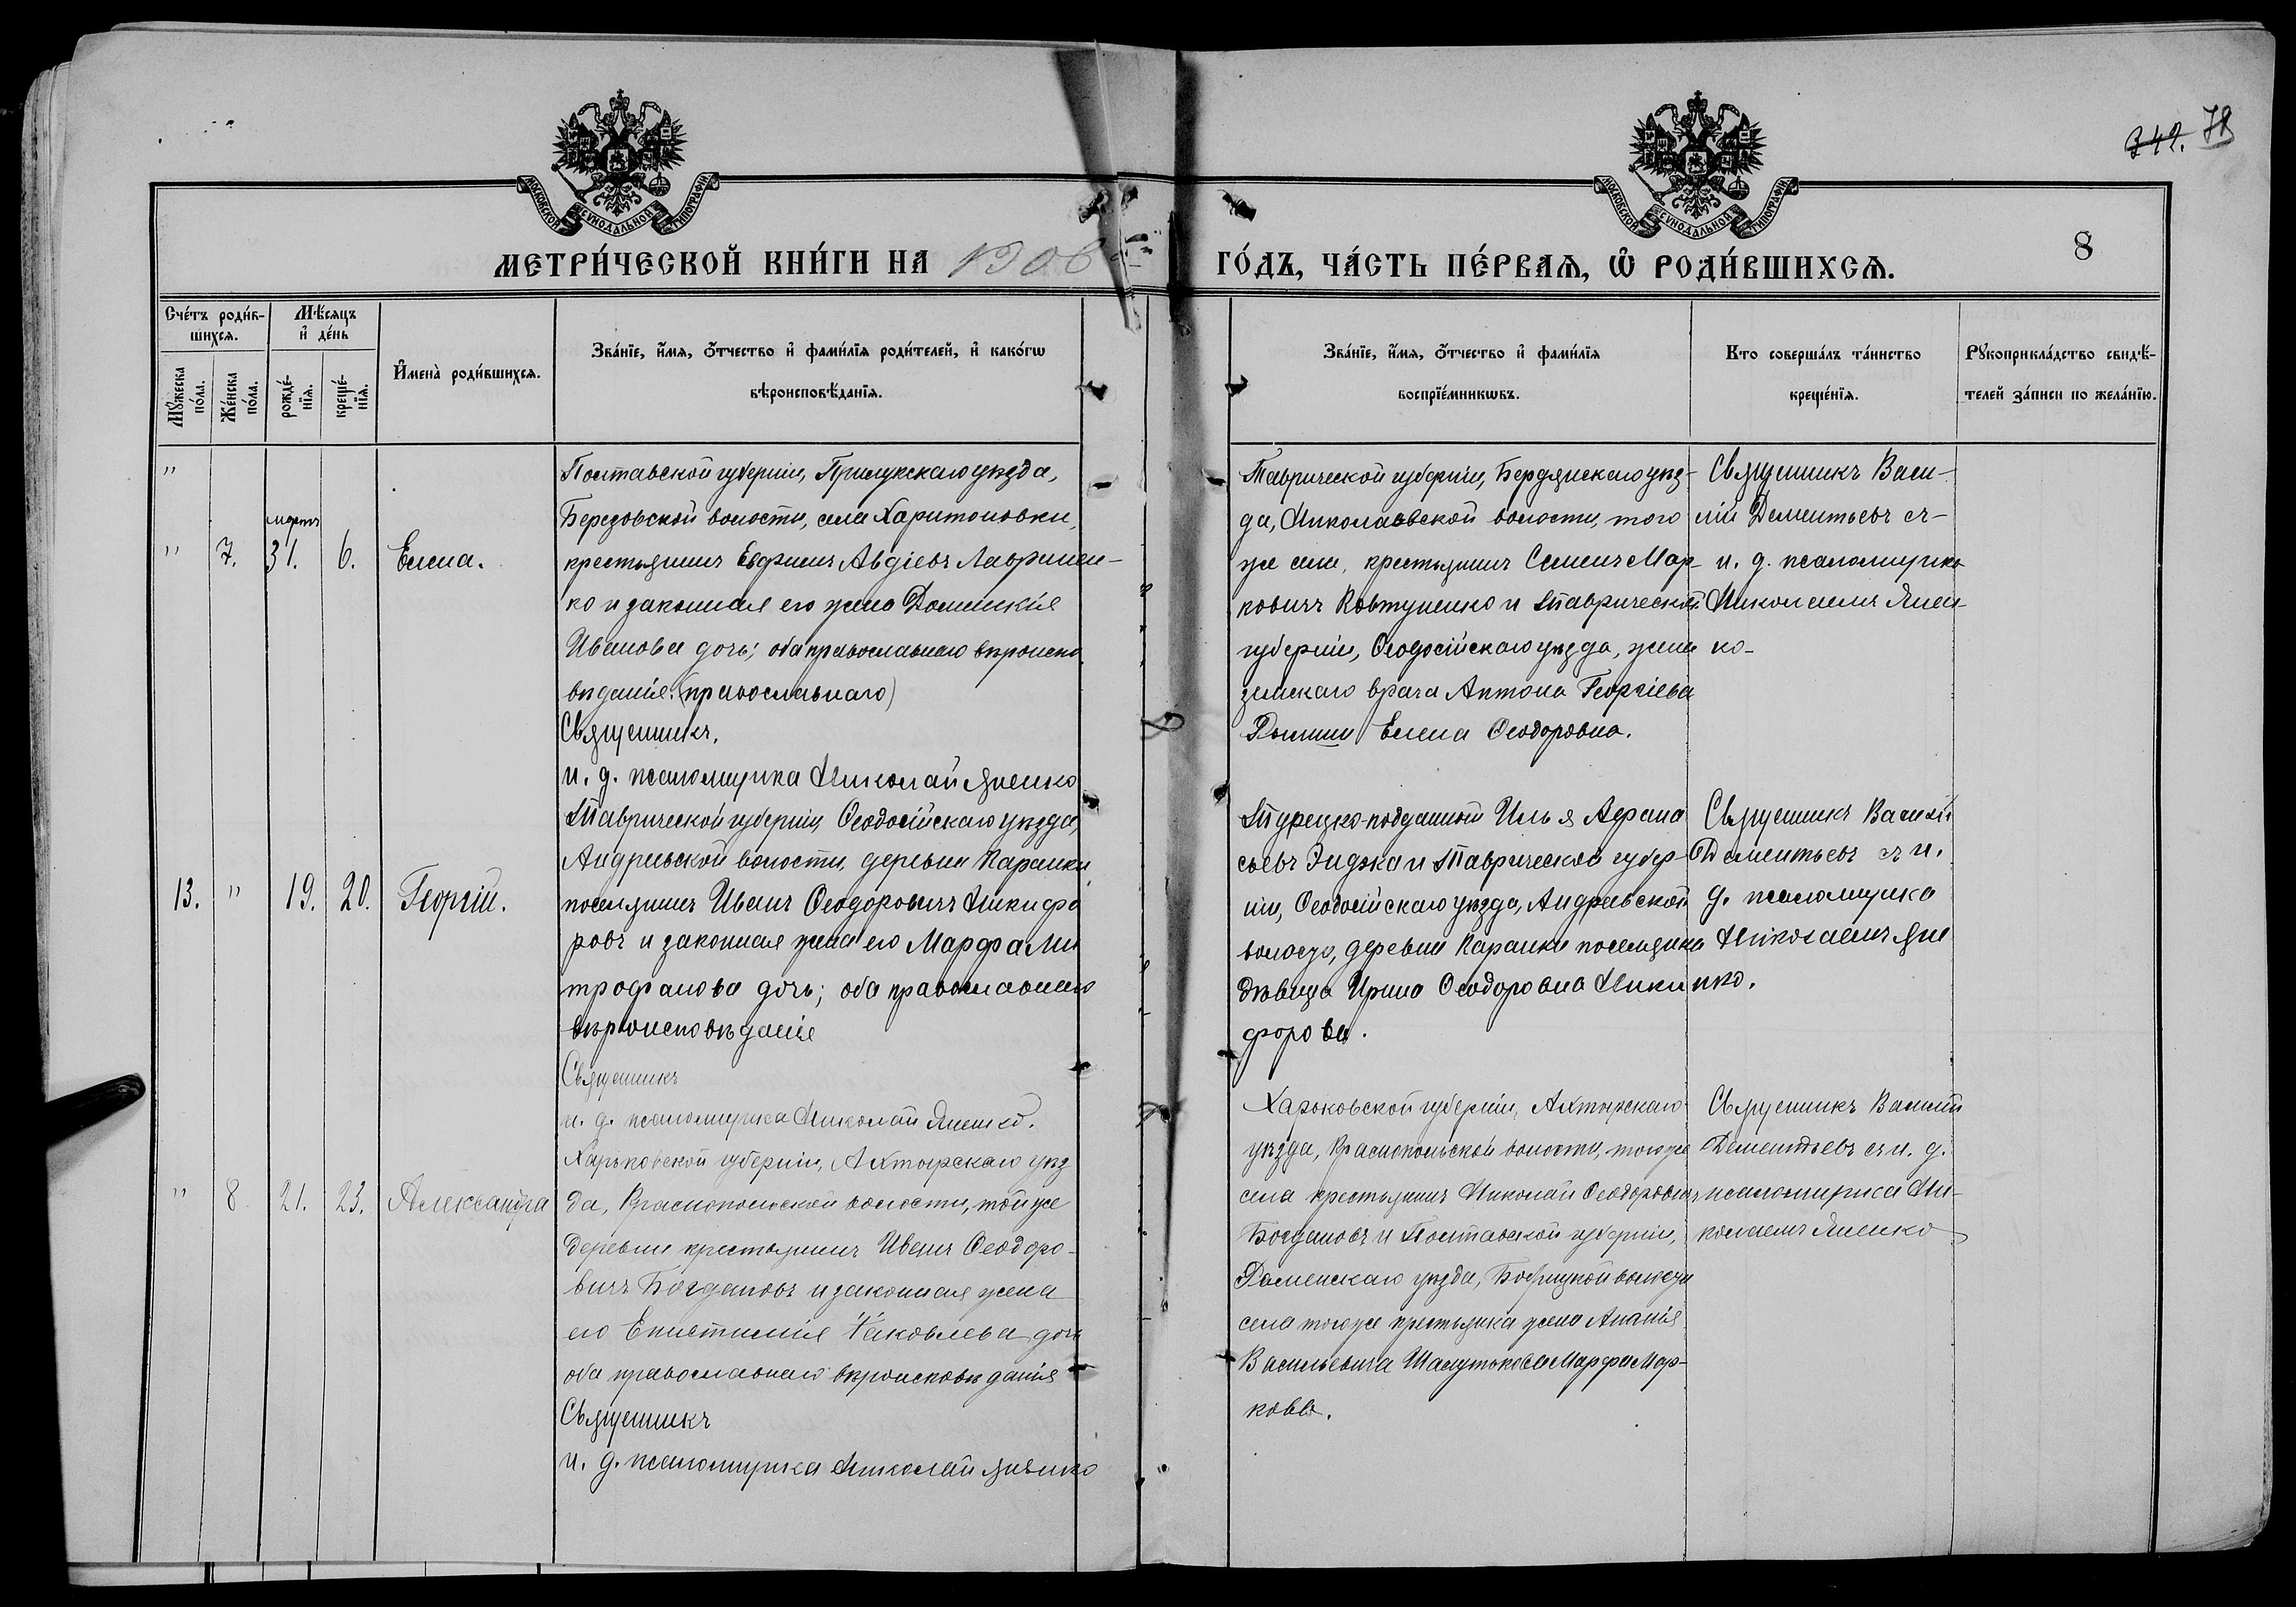 342. 78
МОСКОВСКОЙ СУНОДАЛЬНОЙ ТИПОГРАФІИ
МОСКОВСКОЙ СУНОДАЛЬНОЙ ТИПОГРАФІИ
МЕТРИ́ЧЕСКОЙ КНИ́ГИ НА 1906
ГО́ДЪ, ЧА́СТЬ ПЕ́РВАѦ, Ѡ҆ РОДИ́ВШИХСѦ.
8
Сче́тъ роди́в-
шихсѧ.
Мꙋ́жеска
по́ла.
Же́нска
по́ла.
Мѣ́сѧцъ
и҆ де́нь
рожде́-
нїѧ.
креще́-
нїѧ.
И҆мена̀ роди́вшихсѧ.
Зва́нїе, и҆́мѧ, ѻ҆́тчество и҆ фами́лїѧ роди́телей, и҆ како́гѡ
вѣроисповѣ́данїѧ.
Зва́нїе, и҆́мѧ, ѻ҆́тчество и҆ фами́лїѧ
воспрїе́мникѡвъ.
Кто соверша́лъ та́инство
креще́нїѧ.
Рꙋкоприкла́дство свидѣ́-
телей за́писи по жела́нїю.
"
" 7. мартъ 31. 6. Елена.
Полтавской губерніи, Прилукскаго уѣзда,
Березовской волости, села Харитоновки,
крестьянинъ Евфимъ Авдіевъ Лавринен-
ко и законная его жена Домникія
Иванова дочь; оба православнаго вѣроиспо
вѣданія. (православнаго)
Священникъ,
и. д. псаломщика Николай Яненко
Таврической губерніи, Бердянскаго уѣз-
да, Николаевской волости, того
же села, крестьянинъ Семенъ Мар-
ковичъ Ковтуненко и Таврической
губерніи, Ѳеодосійскаго уѣзда, жена
земскаго врача Антона Георгіева
Елена Ѳеодоровна.
Священникъ Васи-
лій Дементьевъ съ
и. д. псаломщика
Николаемъ Янен-
ко-
13. " 19. 20. Георгій.
Таврической губерніи, Ѳеодосійскаго уѣзда,
Андреевской волости, деревни Каранки
поселянинъ Иванъ Ѳеодоровичъ Никифо
ровъ и законная жена его Марфа Ми
трофанова дочь; оба православнаго
вѣроисповѣданія
Священникъ
и. д. псаломщика Николай Яненко.
Турецко-подданный Илья Афана
сьевъ Эиджа и Таврической губер-
ніи, Ѳеодосійскаго уѣзда, Андреевской
волости, деревни Каранки поселянка
дѣвица Ирина Ѳеодоровна Ники
форова.
Священникъ Василій
Дементьевъ съ и.
д. псаломщика
Николаемъ Яне
нко.
" 8 21. 23. Александра
Харьковской губерніи, Ахтырскаго уѣз
да, Краснопольской волости, той же
деревни крестьянинъ Иванъ Ѳеодоро-
вичъ Богдановъ и законная жена
его Епистимія Іаковлева дочь
оба православнаго вѣроисповѣданія
Священникъ
и. д. псаломщика Николай Яненко
Харьковской губерніи, Ахтырскаго
уѣзда, Краснопольской волости, того же
села крестьянинъ Николай Ѳеодоровичъ
Богдановъ и Полтавской губерніи,
Роменскаго уѣзда, волости
села того же крестьянка жена Ананія
Васильевича Марфа Мар-
кова.
Священникъ Василій
Дементьевъ съ и. д.
псаломщика Ни-
колаемъ Яненко